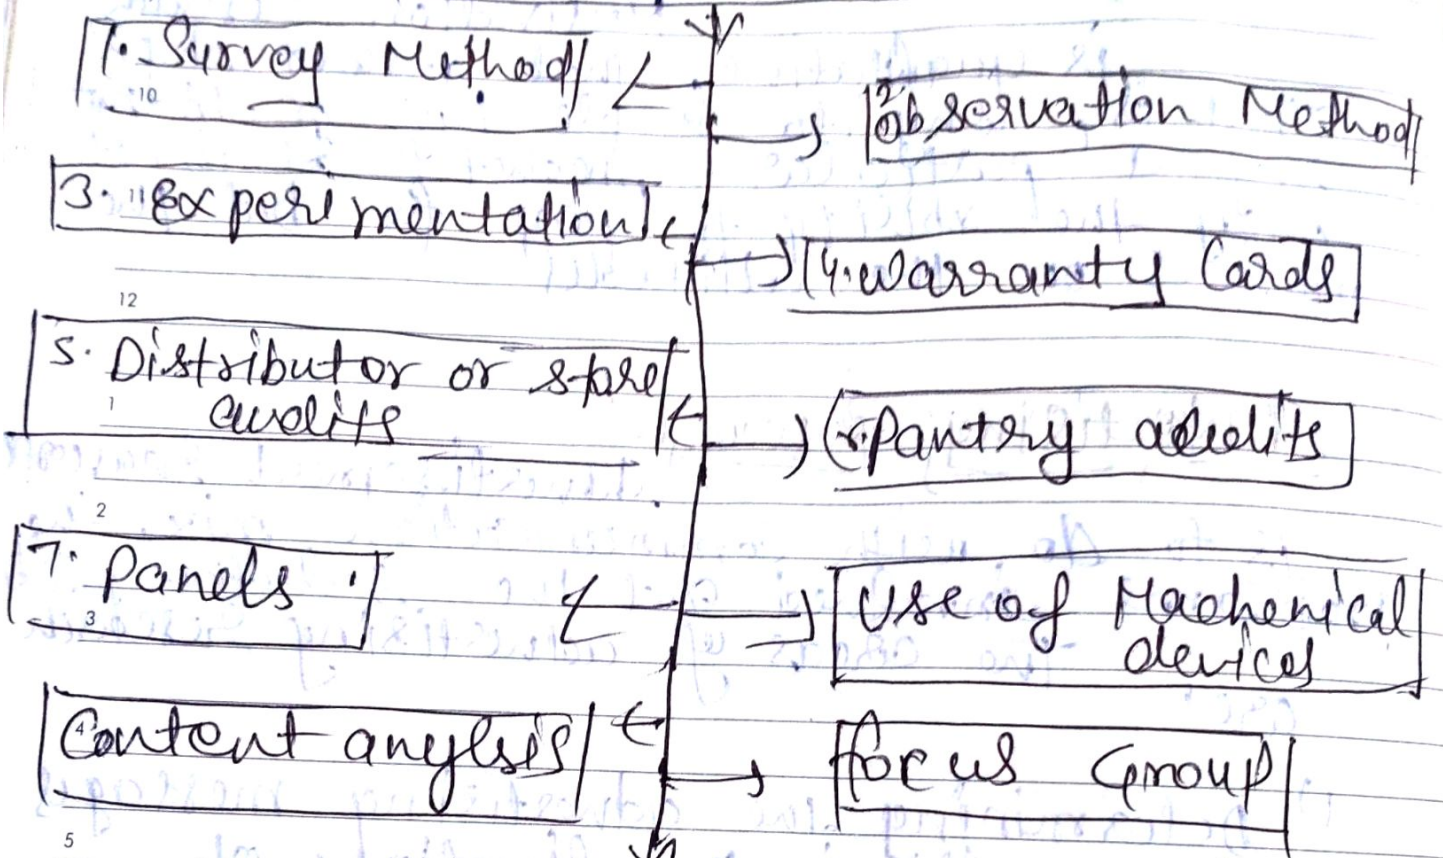 1. Survey Method
10
2
Observation Method
3. Experimentation
11
4. Warranty Cards
12
5. Distributor or store
audits
1
6. Pantry audits
2
7. Panels
3
Use of Machenical
devices
Content anylsis
4
focus Group
5